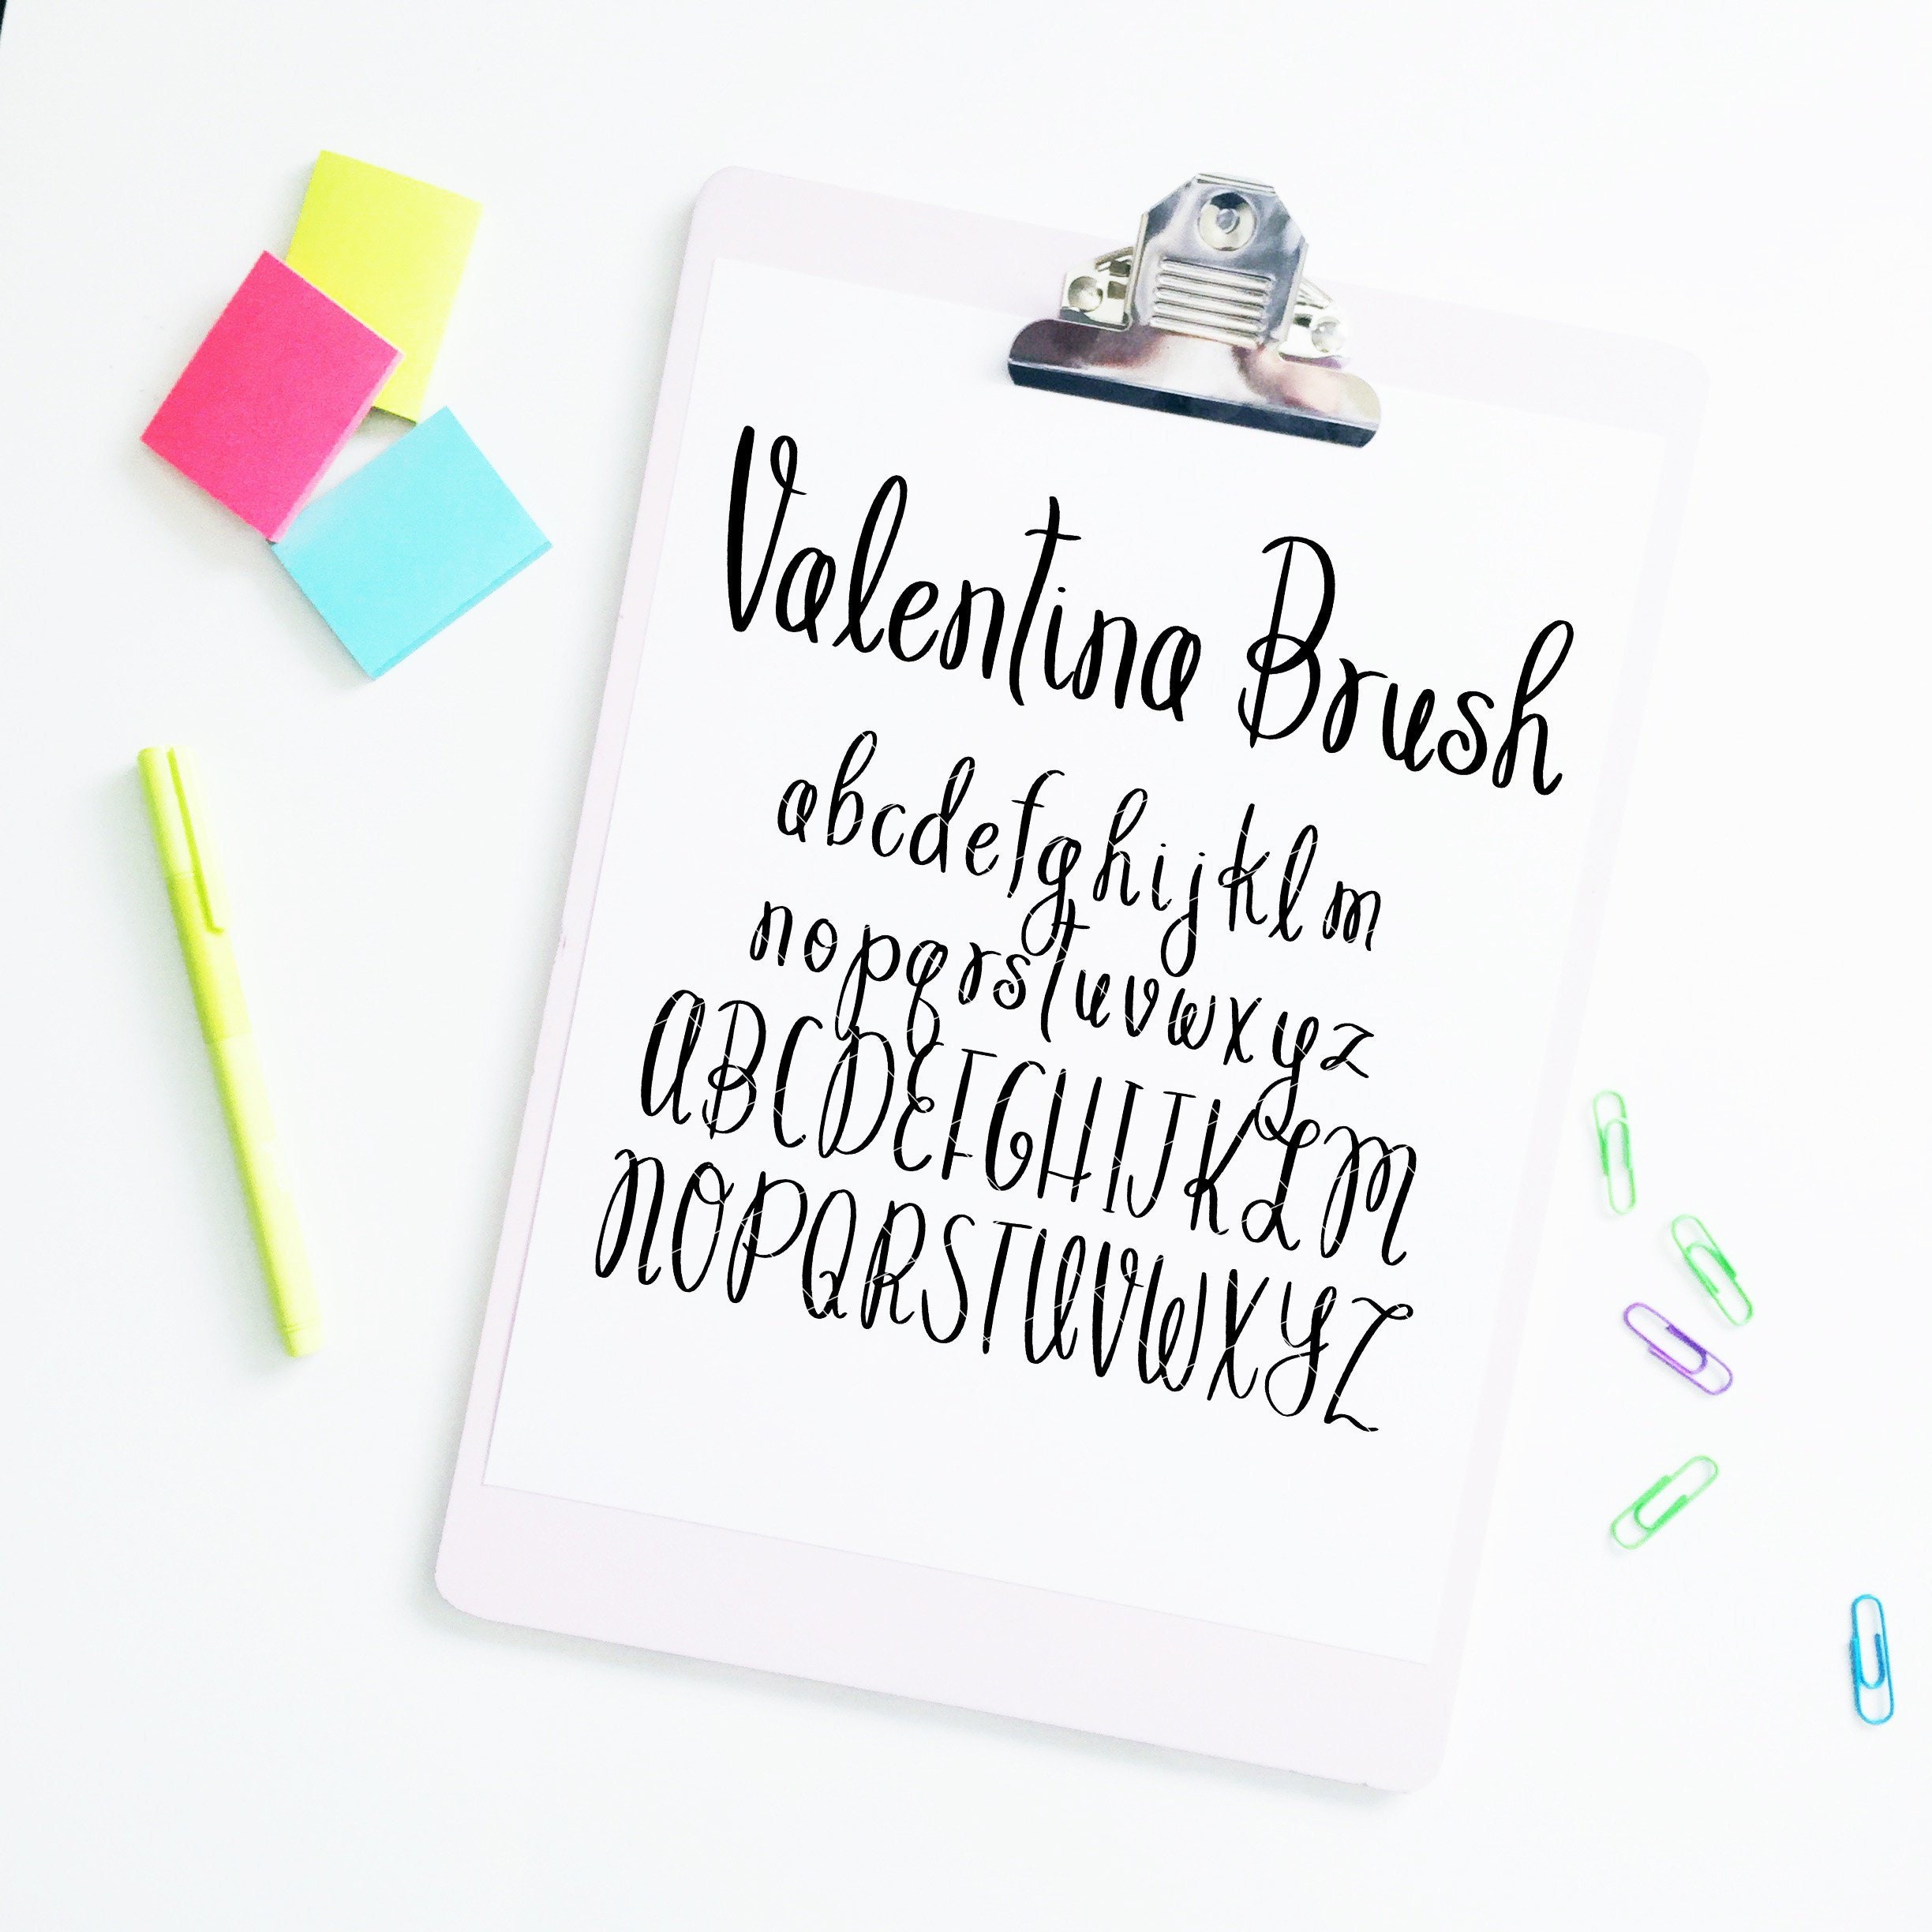 Valentina Brush
abcdefghijklm
nopqrstuvwxyz
ABCDEFGHIJKLM
NOPQRSTUVWXYZ